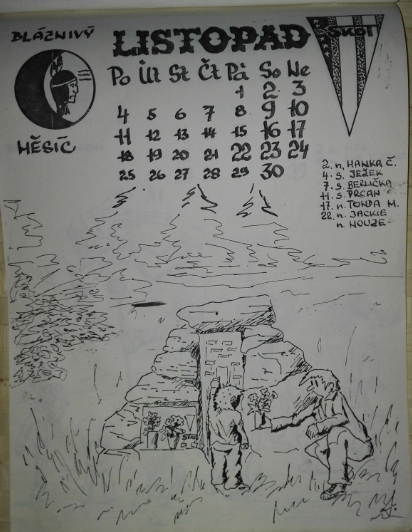 BLÁZNIVÝ
MĚSÍC
LISTOPAD
SKOT
Po Út St Čt Pá So Ne
1 2 3
4 5 6 7 8 9 10
11 12 13 14 15 16 17
18 19 20 21 22 23 24
25 26 27 28 29 30
2. n. HANKA Č.
4. s. JEŽEK
7. s. BERLIČKA
11. s. PRCAN
17. n. TONDA M.
22. n. JACKIE
n. NOUZE